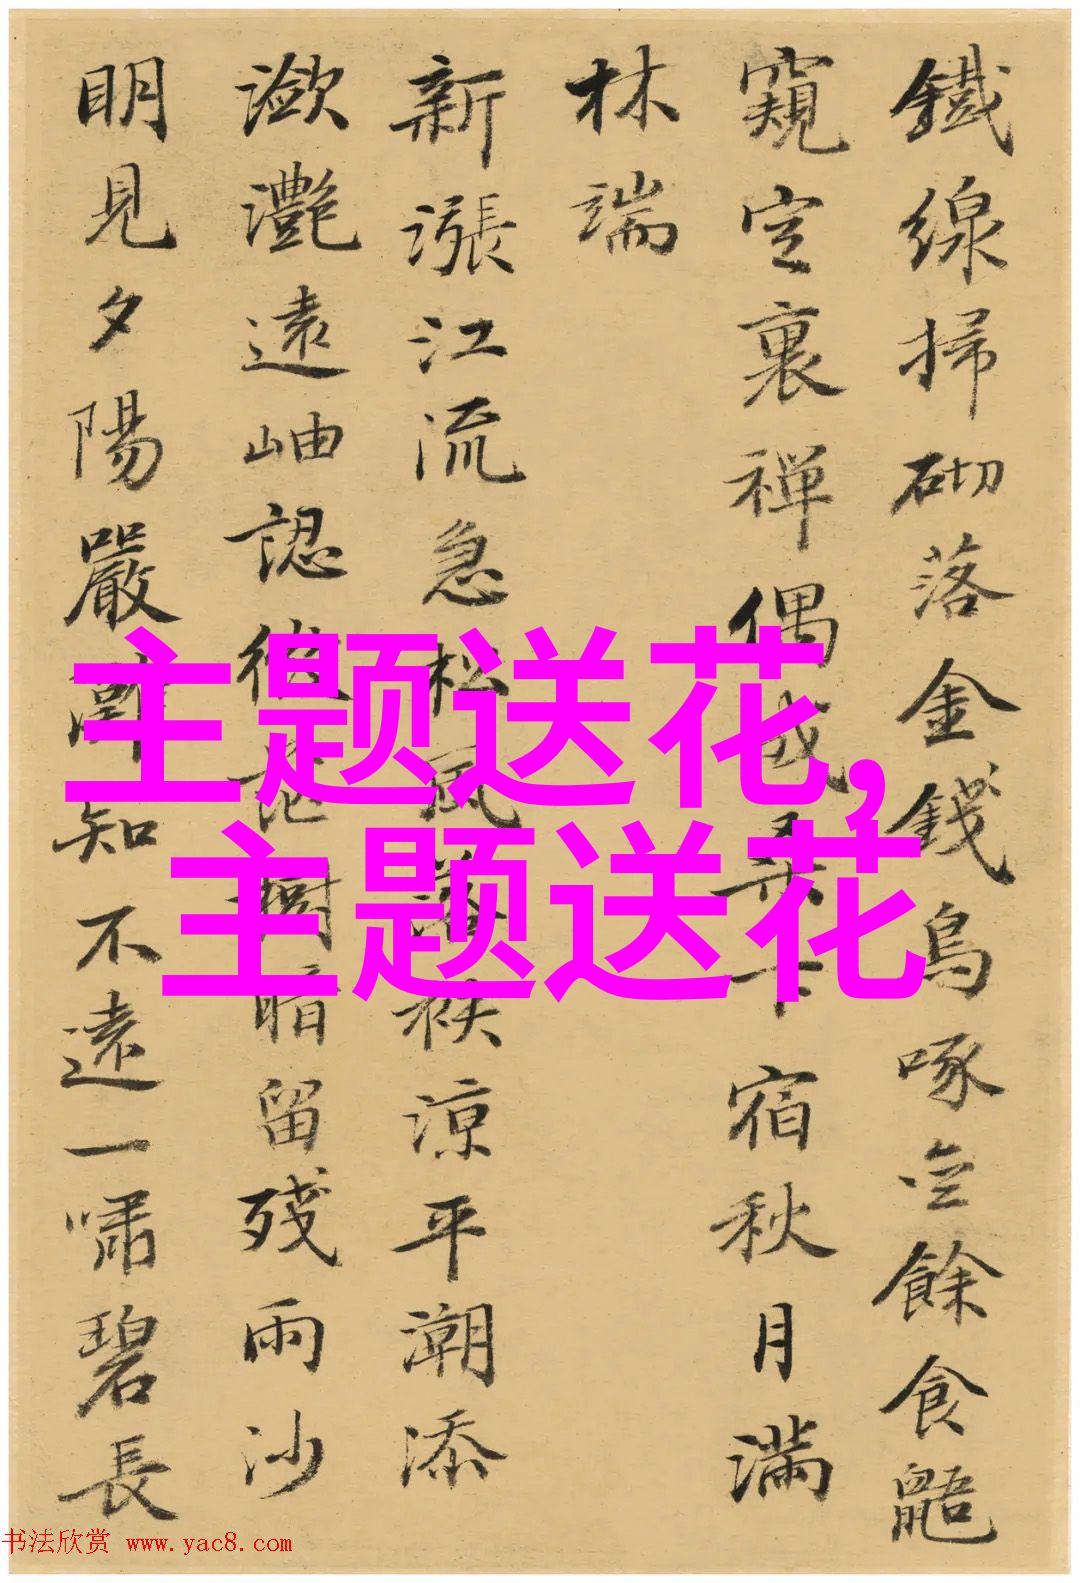 鐵線掃砌落金錢鳥啄餘食鼯
窺定裏禪偶成桑下宿秋月滿
林端
新漲江流急松風落袂涼平潮添
瀲灧遠岫認微茫樹暗留殘雨沙
明見夕陽嚴灘知不遠一嘯碧長
主题送花,
主题送花
书法欣赏 www.yac8.com